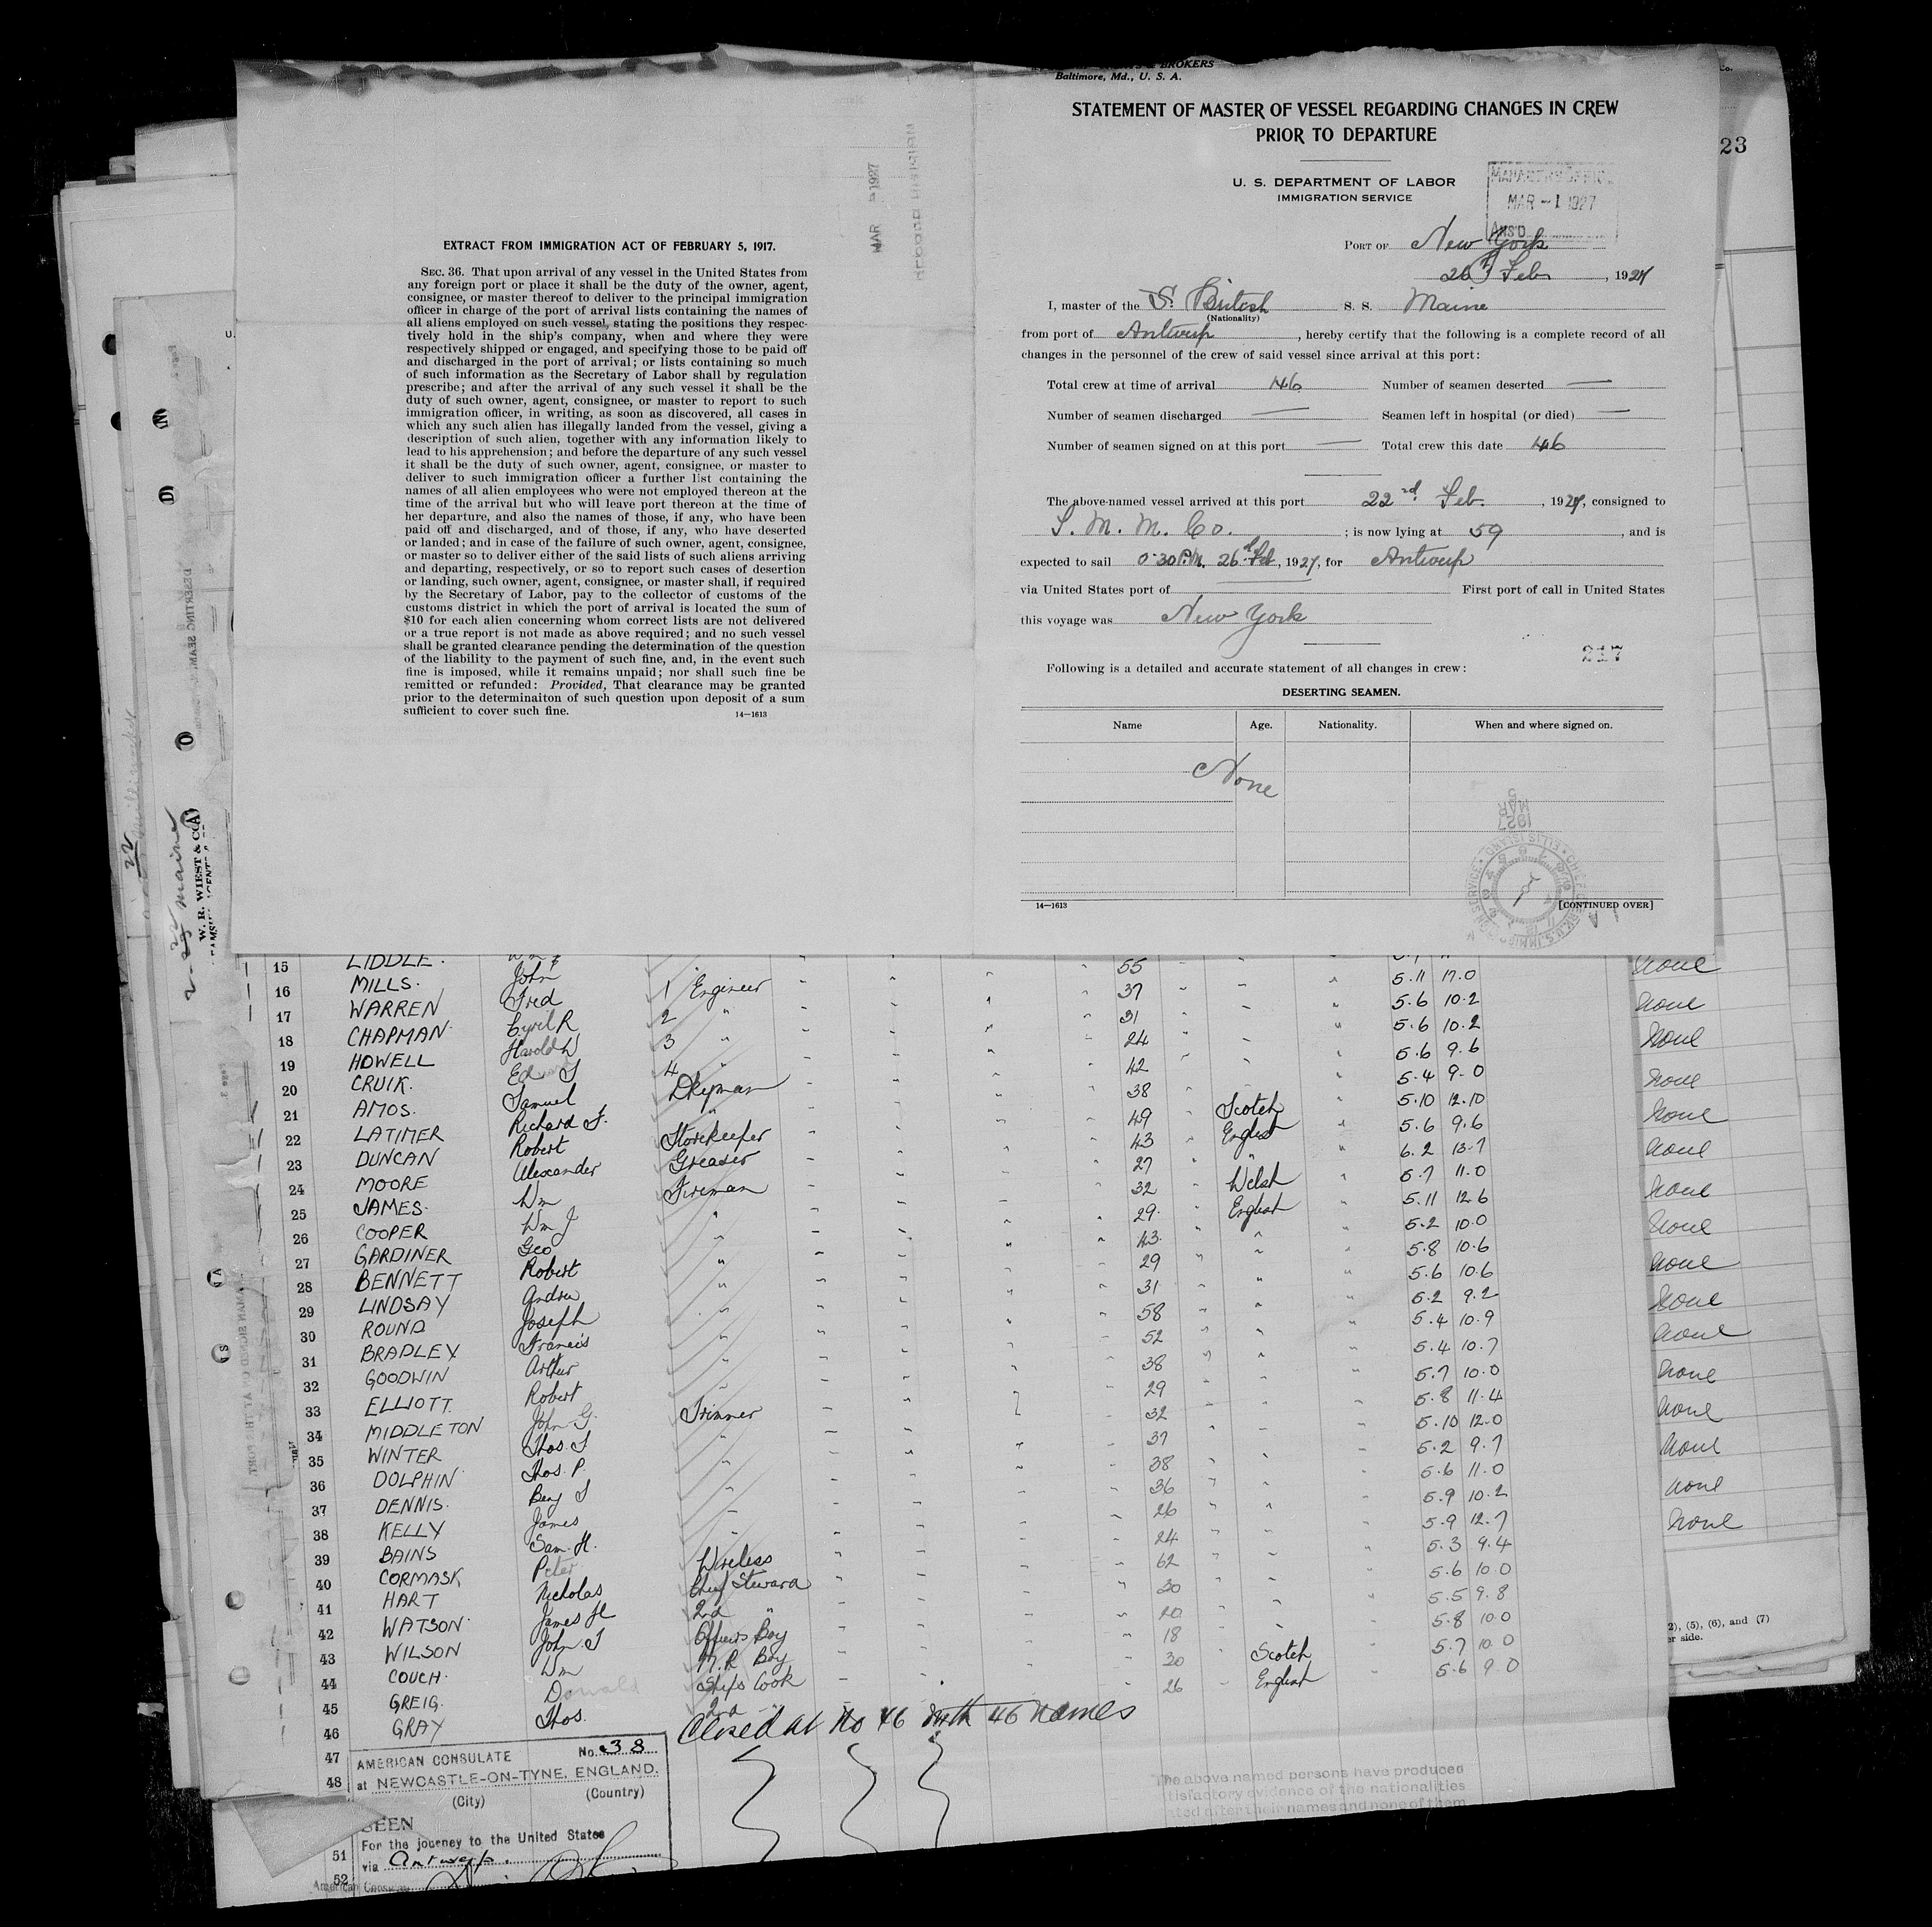 EXTRACT FROM IMMIGRATION ACT OF FEBRUARY 5, 1917.
SEC. 36. That upon arrival of any vessel in the United States from
any foreign port or place it shall be the duty of the owner, agent,
consignee, or master thereof to deliver to the principal immigration
officer in charge of the port of arrival lists containing the names of
all aliens employed on such vessel, stating the positions they respec-
tively hold in the ship's company, when and where they were
respectively shipped or engaged, and specifying those to be paid off
and discharged in the port of arrival; or lists containing so much
of such information as the Secretary of Labor shall by regulation
prescribe; and after the arrival of any such vessel it shall be the
duty of such owner, agent, consignee, or master to report to such
immigration officer, in writing, as soon as discovered, all cases in
which any such alien has illegally landed from the vessel, giving a
description of such alien, together with any information likely to
lead to his apprehension; and before the departure of any such vessel
it shall be the duty of such owner, agent, consignee, or master to
deliver to such immigration officer a further list containing the
names of all alien employees who were not employed thereon at the
time of the arrival but who will leave port thereon at the time of
her departure, and also the names of those, if any, who have been
paid off and discharged, and of those, if any, who have deserted
or landed; and in case of the failure of such owner, agent, consignee,
or master so to deliver either of the said lists of such aliens arriving
and departing, respectively, or so to report such cases of desertion
or landing, such owner, agent, consignee, or master shall, if required
by the Secretary of Labor, pay to the collector of customs of the
customs district in which the port of arrival is located the sum of
$10 for each alien concerning whom correct lists are not delivered
or a true report is not made as above required; and no such vessel
shall be granted clearance pending the determination of the question
of the liability to the payment of such fine, and, in the event such
fine is imposed, while it remains unpaid; nor shall such fine be
remitted or refunded: Provided, That clearance may be granted
prior to the determinaiton of such question upon deposit of a sum
sufficient to cover such fine.
14—1613
MAR 5 1927
BROKERS
Baltimore, Md., U. S. A.
STATEMENT OF MASTER OF VESSEL REGARDING CHANGES IN CREW
PRIOR TO DEPARTURE
U. S. DEPARTMENT OF LABOR
IMMIGRATION SERVICE
MAR - 1 1927
ANS'D
PORT OF New York
26th Feb, 1927
I, master of the British S. S. Maine
(Nationality)
from port of Antwerp, hereby certify that the following is a complete record of all
changes in the personnel of the crew of said vessel since arrival at this port:
Total crew at time of arrival 46 Number of seamen deserted —
Number of seamen discharged — Seamen left in hospital (or died) —
Number of seamen signed on at this port — Total crew this date 46
The above-named vessel arrived at this port 22nd Feb., 1927, consigned to
I. M. M. Co.; is now lying at 59, and is
expected to sail 0-30 P.M. 26th Feb, 1927, for Antwerp
via United States port of — First port of call in United States
this voyage was New York
217
Following is a detailed and accurate statement of all changes in crew:
DESERTING SEAMEN.
Name Age. Nationality. When and where signed on.
None
MAR 5 1927
ELLIS ISLAND
14—1613
[CONTINUED OVER]
23
W. R. WIEST & CO
2-22 maine
15 LIDDLE. 55 none
16 MILLS. John 1 Engineer " " " 37 " " " 5.11 17.0
17 WARREN Fred 2 " 31 5.6 10.2 none
18 CHAPMAN Cyril R 3 " 24 5.6 10.2 none
19 HOWELL Harold W 4 " 42 5.6 9.6
20 CRUIK. Dkyman 38 5.4 9.0 none
21 AMOS. Samuel " 49 Scotch 5.10 12.10 none
22 LATIMER Richard F. Storekeeper 43 English 5.6 9.6 none
23 DUNCAN Robert Greaser 27 " 6.2 13.7
24 MOORE Alexander Fireman 32 Welsh 5.7 11.0 none
25 JAMES. Wm " 29 English 5.11 12.6 none
26 COOPER Wm J " 43 " 5.2 10.0
27 GARDINER Geo " 29 " 5.8 10.6 none
28 BENNETT Robert " 31 " 5.6 10.6 none
29 LINDSAY Andrew " 58 " 5.2 9.2 none
30 ROUND Joseph " 52 " 5.4 10.9
31 BRADLEY Francis " 38 " 5.4 10.7 none
32 GOODWIN Arthur " 29 " 5.7 10.0 none
33 ELLIOTT. Robert Trimmer 32 " 5.8 11.4
34 MIDDLETON John G. " 37 " 5.10 12.0 none
35 WINTER Thos. " 38 " 5.2 9.7 none
36 DOLPHIN Thos. P. " 36 " 5.6 11.0 none
37 DENNIS. Benj " 26 " 5.9 10.2
38 KELLY James " 24 " 5.9 12.7
39 BAINS Sam. H. Wireless 62 " 5.3 9.4
40 CORMASK Peter Chief Steward 20 5.6 10.0
41 HART Nicholas 2nd " 20 5.5 9.8
42 WATSON James H Officers Boy 18 5.8 10.0
43 WILSON John M.R. Boy 30 Scotch 5.7 10.0
44 COUCH. Wm Ships Cook 26 English 5.6 9.0
45 GREIG. Donald 2nd "
46 GRAY Thos.
Closed at No 46 with 46 names
47
48
51
52
AMERICAN CONSULATE No. 38
at NEWCASTLE-ON-TYNE, ENGLAND.
(City) (Country)
SEEN
For the journey to the United States
via Antwerp.
American Consul
The above named persons have produced
satisfactory evidence of the nationalities
stated after their names and none of them
2), (5), (6), and (7)
er side.